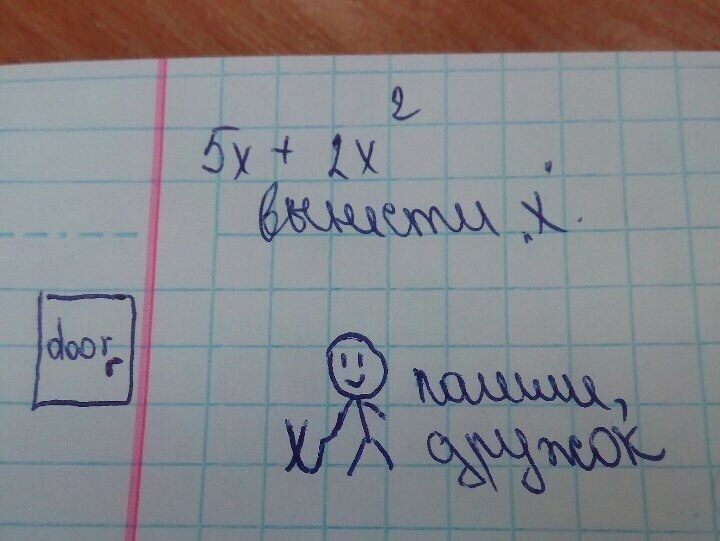 5x + 2x²
вынести x.
door
пошли,
дружок
X